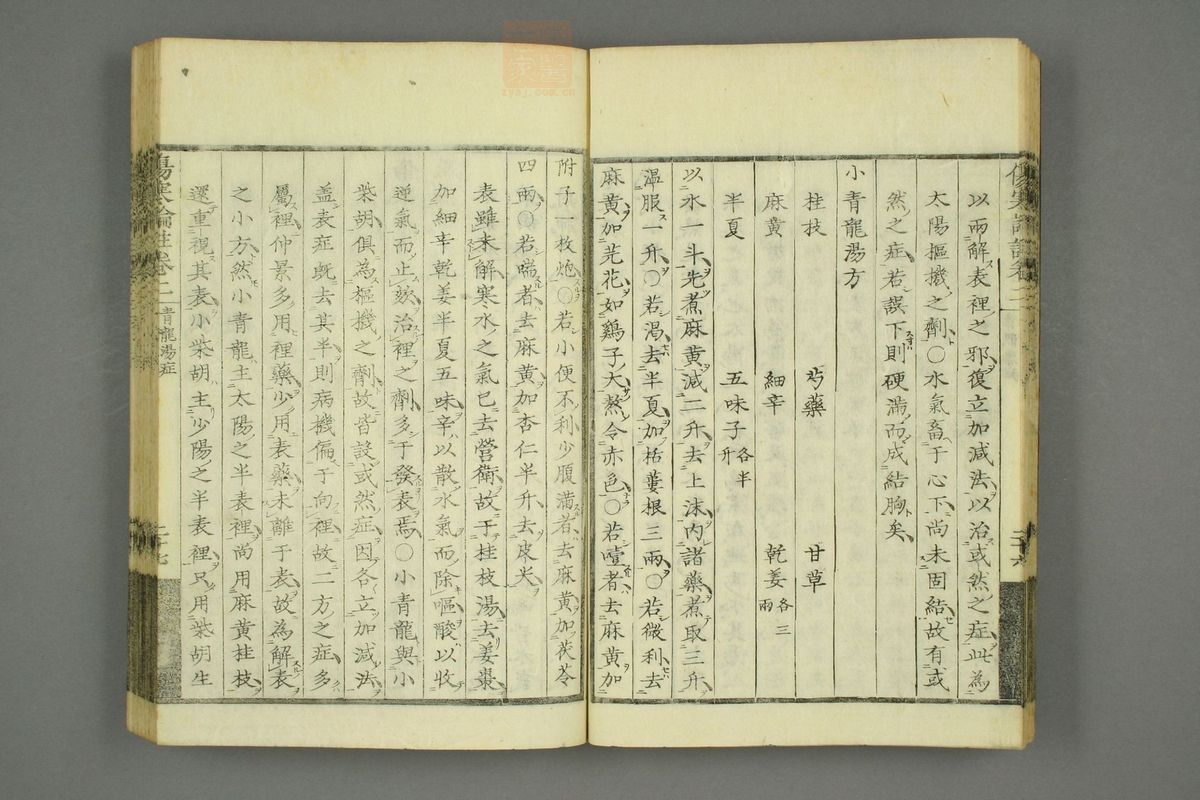 以兩解表裡之邪復立加減法以治或然之症此為
太陽樞機之劑〇水氣畜于心下尚未固結故有或
然之症若誤下則硬滿而成結胸矣
小青龍湯方
桂枝 芍藥 甘草
麻黃 細辛 乾姜各三兩
半夏 五味子各半升
以水一斗先煮麻黃減二升去上沫內諸藥煮取三升
溫服一升〇若渴去半夏加栝蔞根三兩〇若微利去
麻黃加芫花如鷄子大熬令赤色〇若噎者去麻黃加
附子一枚炮〇若小便不利少腹滿者去麻黃加茯苓
四兩〇若喘者去麻黃加杏仁半升去皮尖
表雖未解寒水之氣已去營衛故于桂枝湯去姜棗
加細辛乾姜半夏五味辛以散水氣而除嘔酸以收
逆氣而止欬治裡之劑多于發表焉〇小青龍與小
柴胡俱為樞機之劑故皆設或然症因各立加減法
盖表症既去其半則病機偏于向裡故二方之症多
屬裡仲景多用裡藥少用表藥未離于表故為解表
之小方然小青龍主太陽之半表裡尚用麻黃桂枝
還重視其表小柴胡主少陽之半表裡只用柴胡生
傷寒論註卷二 青龍湯症 二十七
zyzj.com.cn